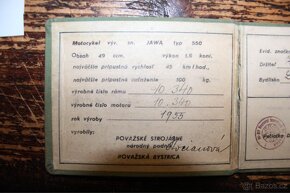 Motocykel výr. zn. JAWA typ 550
Obsah 49 ccm. výkon 1,5 koní.
najväčšie prípustná rychlosť 45 km/hod.,
najväčšie prípustné zaťaženie 100 kg.
výrobné číslo rámu 10.340
výrobné číslo motoru 10.340
rok výroby 1955
vyrobily:
POVAŽSKÉ STROJÁRNE
národný podnik
POVAŽSKÁ BYSTRICA
Evid. značka
Držiteľ
Bydlisko